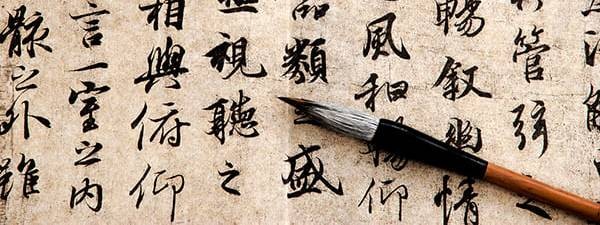 管弦之
暢叙幽情
風和暢仰
品類之盛
視聽之
相與俯仰
言一室之內
骸之外雖